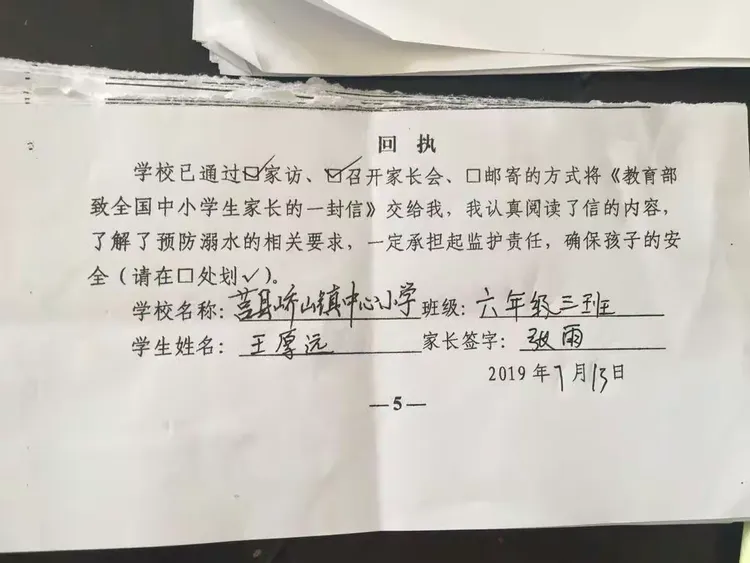 回执
学校已通过☑家访、☑召开家长会、□邮寄的方式将《教育部
致全国中小学生家长的一封信》交给我，我认真阅读了信的内容，
了解了预防溺水的相关要求，一定承担起监护责任，确保孩子的安
全（请在□处划✓）。
学校名称：莒县峤山镇中心小学 班级：六年级三班
学生姓名：王厚远 家长签字：张雨
2019年7月13日
—5—